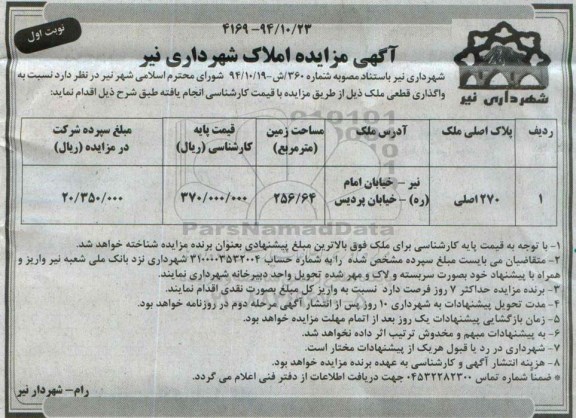 ۴۱۶۹-۹۴/۱۰/۲۳
نوبت اول
آگهی مزایده املاک شهرداری نیر
شهرداری نیر
شهرداری نیر باستناد مصوبه شماره ۳۶۰/ش-۹۴/۱۰/۱۹ شورای محترم اسلامی شهر نیر در نظر دارد نسبت به
واگذاری قطعی ملک ذیل از طریق مزایده با قیمت کارشناسی انجام یافته طبق شرح ذیل اقدام نماید:
ردیف پلاک اصلی ملک آدرس ملک مساحت زمین (مترمربع) قیمت پایه کارشناسی (ریال) مبلغ سپرده شرکت در مزایده (ریال)
۱ ۲۷۰ اصلی نیر - خیابان امام (ره) - خیابان پردیس ۲۵۶/۶۴ ۳۷۰/۰۰۰/۰۰۰ ۲۰/۳۵۰/۰۰۰
ParsNamadData
۱- با توجه به قیمت پایه کارشناسی برای ملک فوق بالاترین مبلغ پیشنهادی بعنوان برنده مزایده شناخته خواهد شد.
۲- متقاضیان می بایست مبلغ سپرده مشخص شده را به شماره حساب ۳۱۰۰۰۰۳۵۳۲۰۰۴ شهرداری نزد بانک ملی شعبه نیر واریز و
همراه با پیشنهاد خود بصورت سربسته و لاک و مهر شده تحویل واحد دبیرخانه شهرداری نمایند.
۳- برنده مزایده حداکثر ۷ روز فرصت دارد نسبت به واریز کل مبلغ بصورت نقدی اقدام نمایند.
۴- مدت تحویل پیشنهادات به شهرداری ۱۰ روز پس از انتشار آگهی مرحله دوم در روزنامه خواهد بود.
۵- زمان بازگشایی پیشنهادات یک روز بعد از اتمام مهلت مزایده خواهد بود.
۶- به پیشنهادات مبهم و مخدوش ترتیب اثر داده نخواهد شد.
۷- شهرداری در رد یا قبول هریک از پیشنهادات مختار است.
۸- هزینه انتشار آگهی و کارشناسی به عهده برنده مزایده خواهد بود.
* ضمنا شماره تماس ۰۴۵۳۲۲۸۲۳۰۰ جهت دریافت اطلاعات از دفتر فنی اعلام می گردد.
رام- شهردار نیر